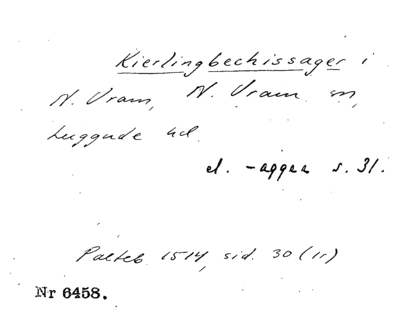 Kierlingbechissager i
N. Vram, N. Vram sn,
Luggude hd.
el. -aggeæ s. 31.
Palteb. 1514, sid. 30 (1r)
Nr 6458.